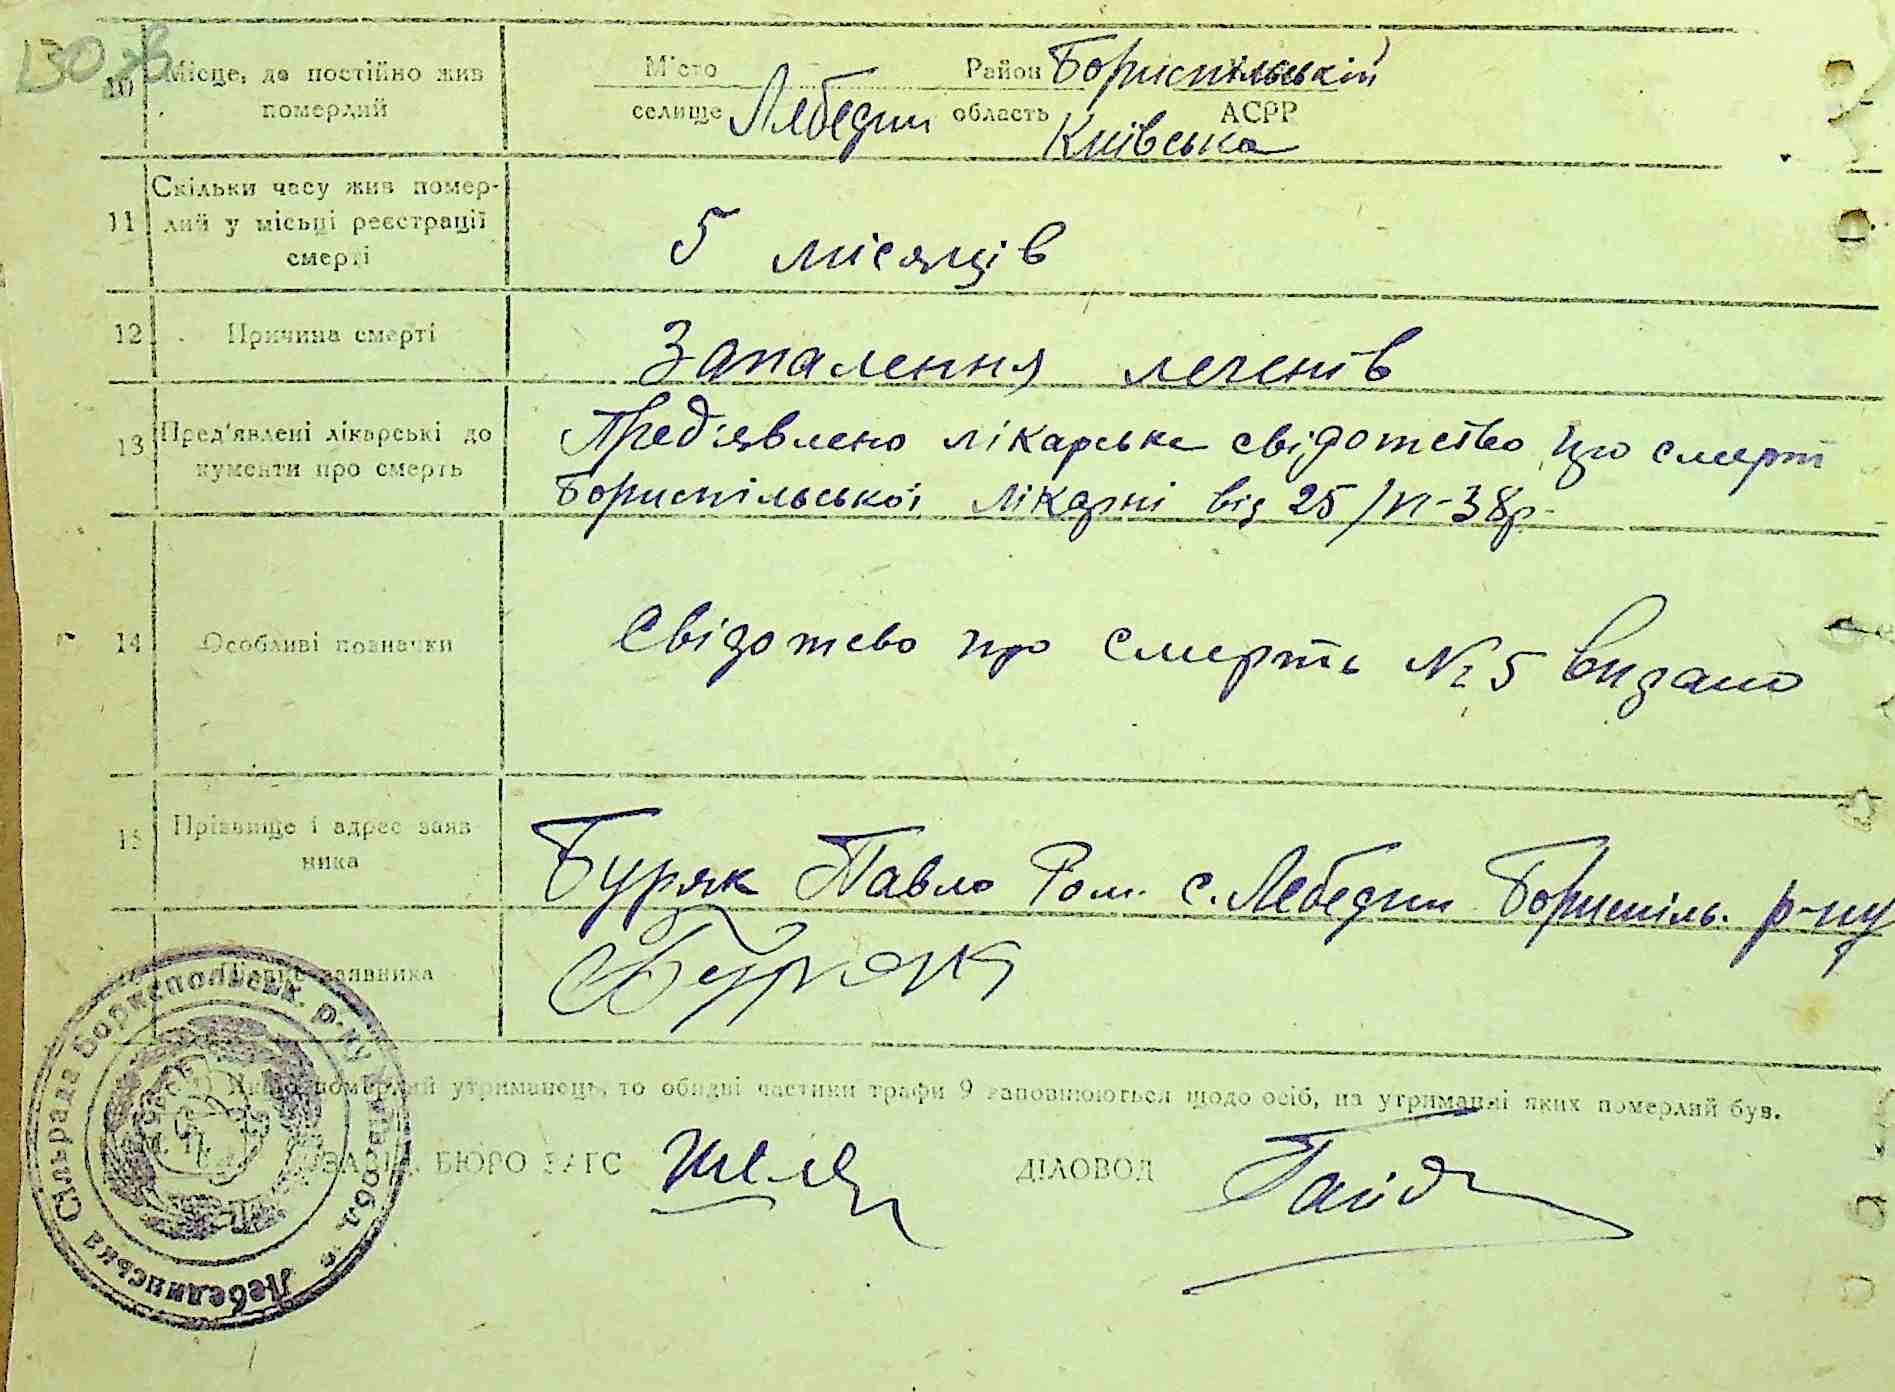 130 зв
10 Місце, де постійно жив померлий
Місто Район Бориспільській
селище Лебедин область Київська АСРР
11 Скільки часу жив помер-
лий у місці реєстрації
смерті
5 місяців
12 Причина смерті
Запалення легенів
13 Пред'явлені лікарські до
кументи про смерть
Пред'явлено лікарське свідотство про смерт
Бориспільської лікарні від 25/VI-38р.
14 Особливі позначки
Свідотсво про смерть № 5 видано
15 Прізвище і адрес заяв-
ника
Буряк Павло Ром. с. Лебедин Бориспіль. р-ну
заявника
Буряк
Якщо померлий утриманець, то обидві частини графи 9 заповнюються щодо осіб, на утриманні яких померлий був.
ЗАВІД. БЮРО ЗАГС
ДІЛОВОД Гайд
Лебединська Сільрада Бориспольськ. р-ну Київ обл.